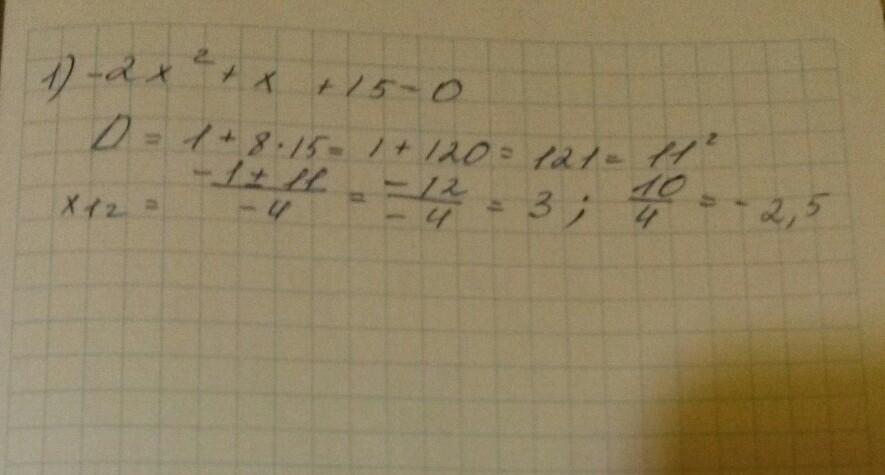 1) -2x² + x + 15 = 0
D = 1 + 8·15 = 1 + 120 = 121 = 11²
x₁₂ = (-1 ± 11)/(-4) = (-12)/(-4) = 3; 10/4 = -2,5